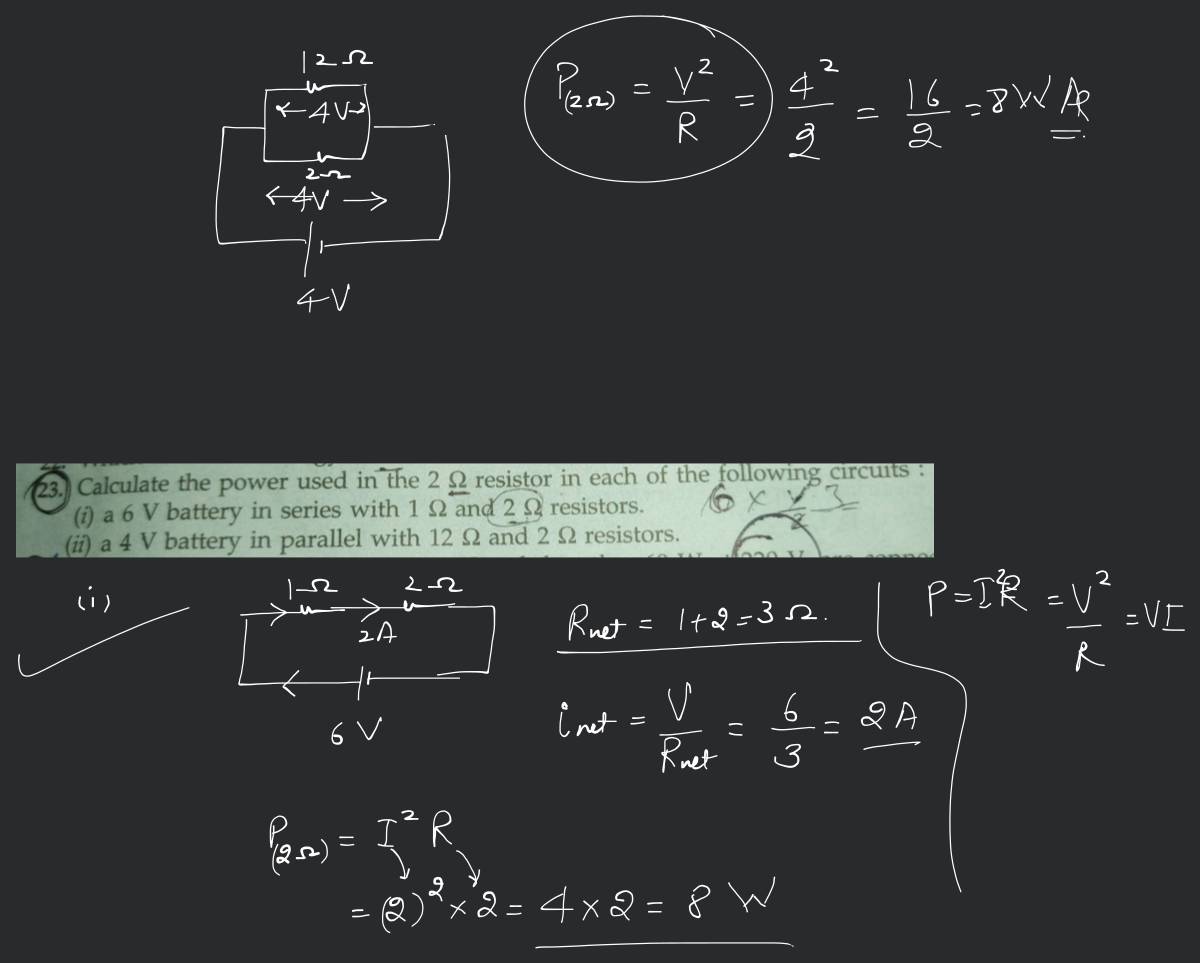 12Ω
← 4V →
2Ω
← 4V →
4V
P(2Ω) = V²/R = 4²/2 = 16/2 = 8W
23. Calculate the power used in the 2 Ω resistor in each of the following circuits :
(i) a 6 V battery in series with 1 Ω and 2 Ω resistors.
(ii) a 4 V battery in parallel with 12 Ω and 2 Ω resistors.
(i)
1Ω 2Ω
2A
6 V
Rnet = 1+2=3 Ω.
inet = V/Rnet = 6/3 = 2A
P=I²R = V²/R = VI
P(2Ω) = I² R
= (2)² × 2 = 4 × 2 = 8 W